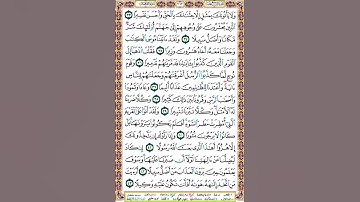 وَلَا يَأْتُونَكَ بِمَثَلٍ إِلَّا جِئْنَٰكَ بِٱلْحَقِّ وَأَحْسَنَ تَفْسِيرًا
ٱلَّذِينَ يُحْشَرُونَ عَلَىٰ وُجُوهِهِمْ إِلَىٰ جَهَنَّمَ أُو۟لَٰٓئِكَ شَرٌّ
مَّكَانًا وَأَضَلُّ سَبِيلًا وَلَقَدْ ءَاتَيْنَا مُوسَى ٱلْكِتَٰبَ
وَجَعَلْنَا مَعَهُۥٓ أَخَاهُ هَٰرُونَ وَزِيرًا فَقُلْنَا ٱذْهَبَآ إِلَى
ٱلْقَوْمِ ٱلَّذِينَ كَذَّبُوا۟ بِـَٔايَٰتِنَا فَدَمَّرْنَٰهُمْ تَدْمِيرًا وَقَوْمَ
نُوحٍ لَّمَّا كَذَّبُوا۟ ٱلرُّسُلَ أَغْرَقْنَٰهُمْ وَجَعَلْنَٰهُمْ لِلنَّاسِ
ءَايَةً وَأَعْتَدْنَا لِلظَّٰلِمِينَ عَذَابًا أَلِيمًا وَعَادًا وَثَمُودَا۟
وَأَصْحَٰبَ ٱلرَّسِّ وَقُرُونًۢا بَيْنَ ذَٰلِكَ كَثِيرًا وَكُلًّا ضَرَبْنَا
لَهُ ٱلْأَمْثَٰلَ وَكُلًّا تَبَّرْنَا تَتْبِيرًا وَلَقَدْ أَتَوْا۟ عَلَى ٱلْقَرْيَةِ
ٱلَّتِىٓ أُمْطِرَتْ مَطَرَ ٱلسَّوْءِ أَفَلَمْ يَكُونُوا۟ يَرَوْنَهَا بَلْ
كَانُوا۟ لَا يَرْجُونَ نُشُورًا وَإِذَا رَأَوْكَ إِن يَتَّخِذُونَكَ
إِلَّا هُزُوًا أَهَٰذَا ٱلَّذِى بَعَثَ ٱللَّهُ رَسُولًا إِن كَادَ
لَيُضِلُّنَا عَنْ ءَالِهَتِنَا لَوْلَآ أَن صَبَرْنَا عَلَيْهَا وَسَوْفَ
يَعْلَمُونَ حِينَ يَرَوْنَ ٱلْعَذَابَ مَنْ أَضَلُّ سَبِيلًا أَرَءَيْتَ
مَنِ ٱتَّخَذَ إِلَٰهَهُۥ هَوَىٰهُ أَفَأَنتَ تَكُونُ عَلَيْهِ وَكِيلًا